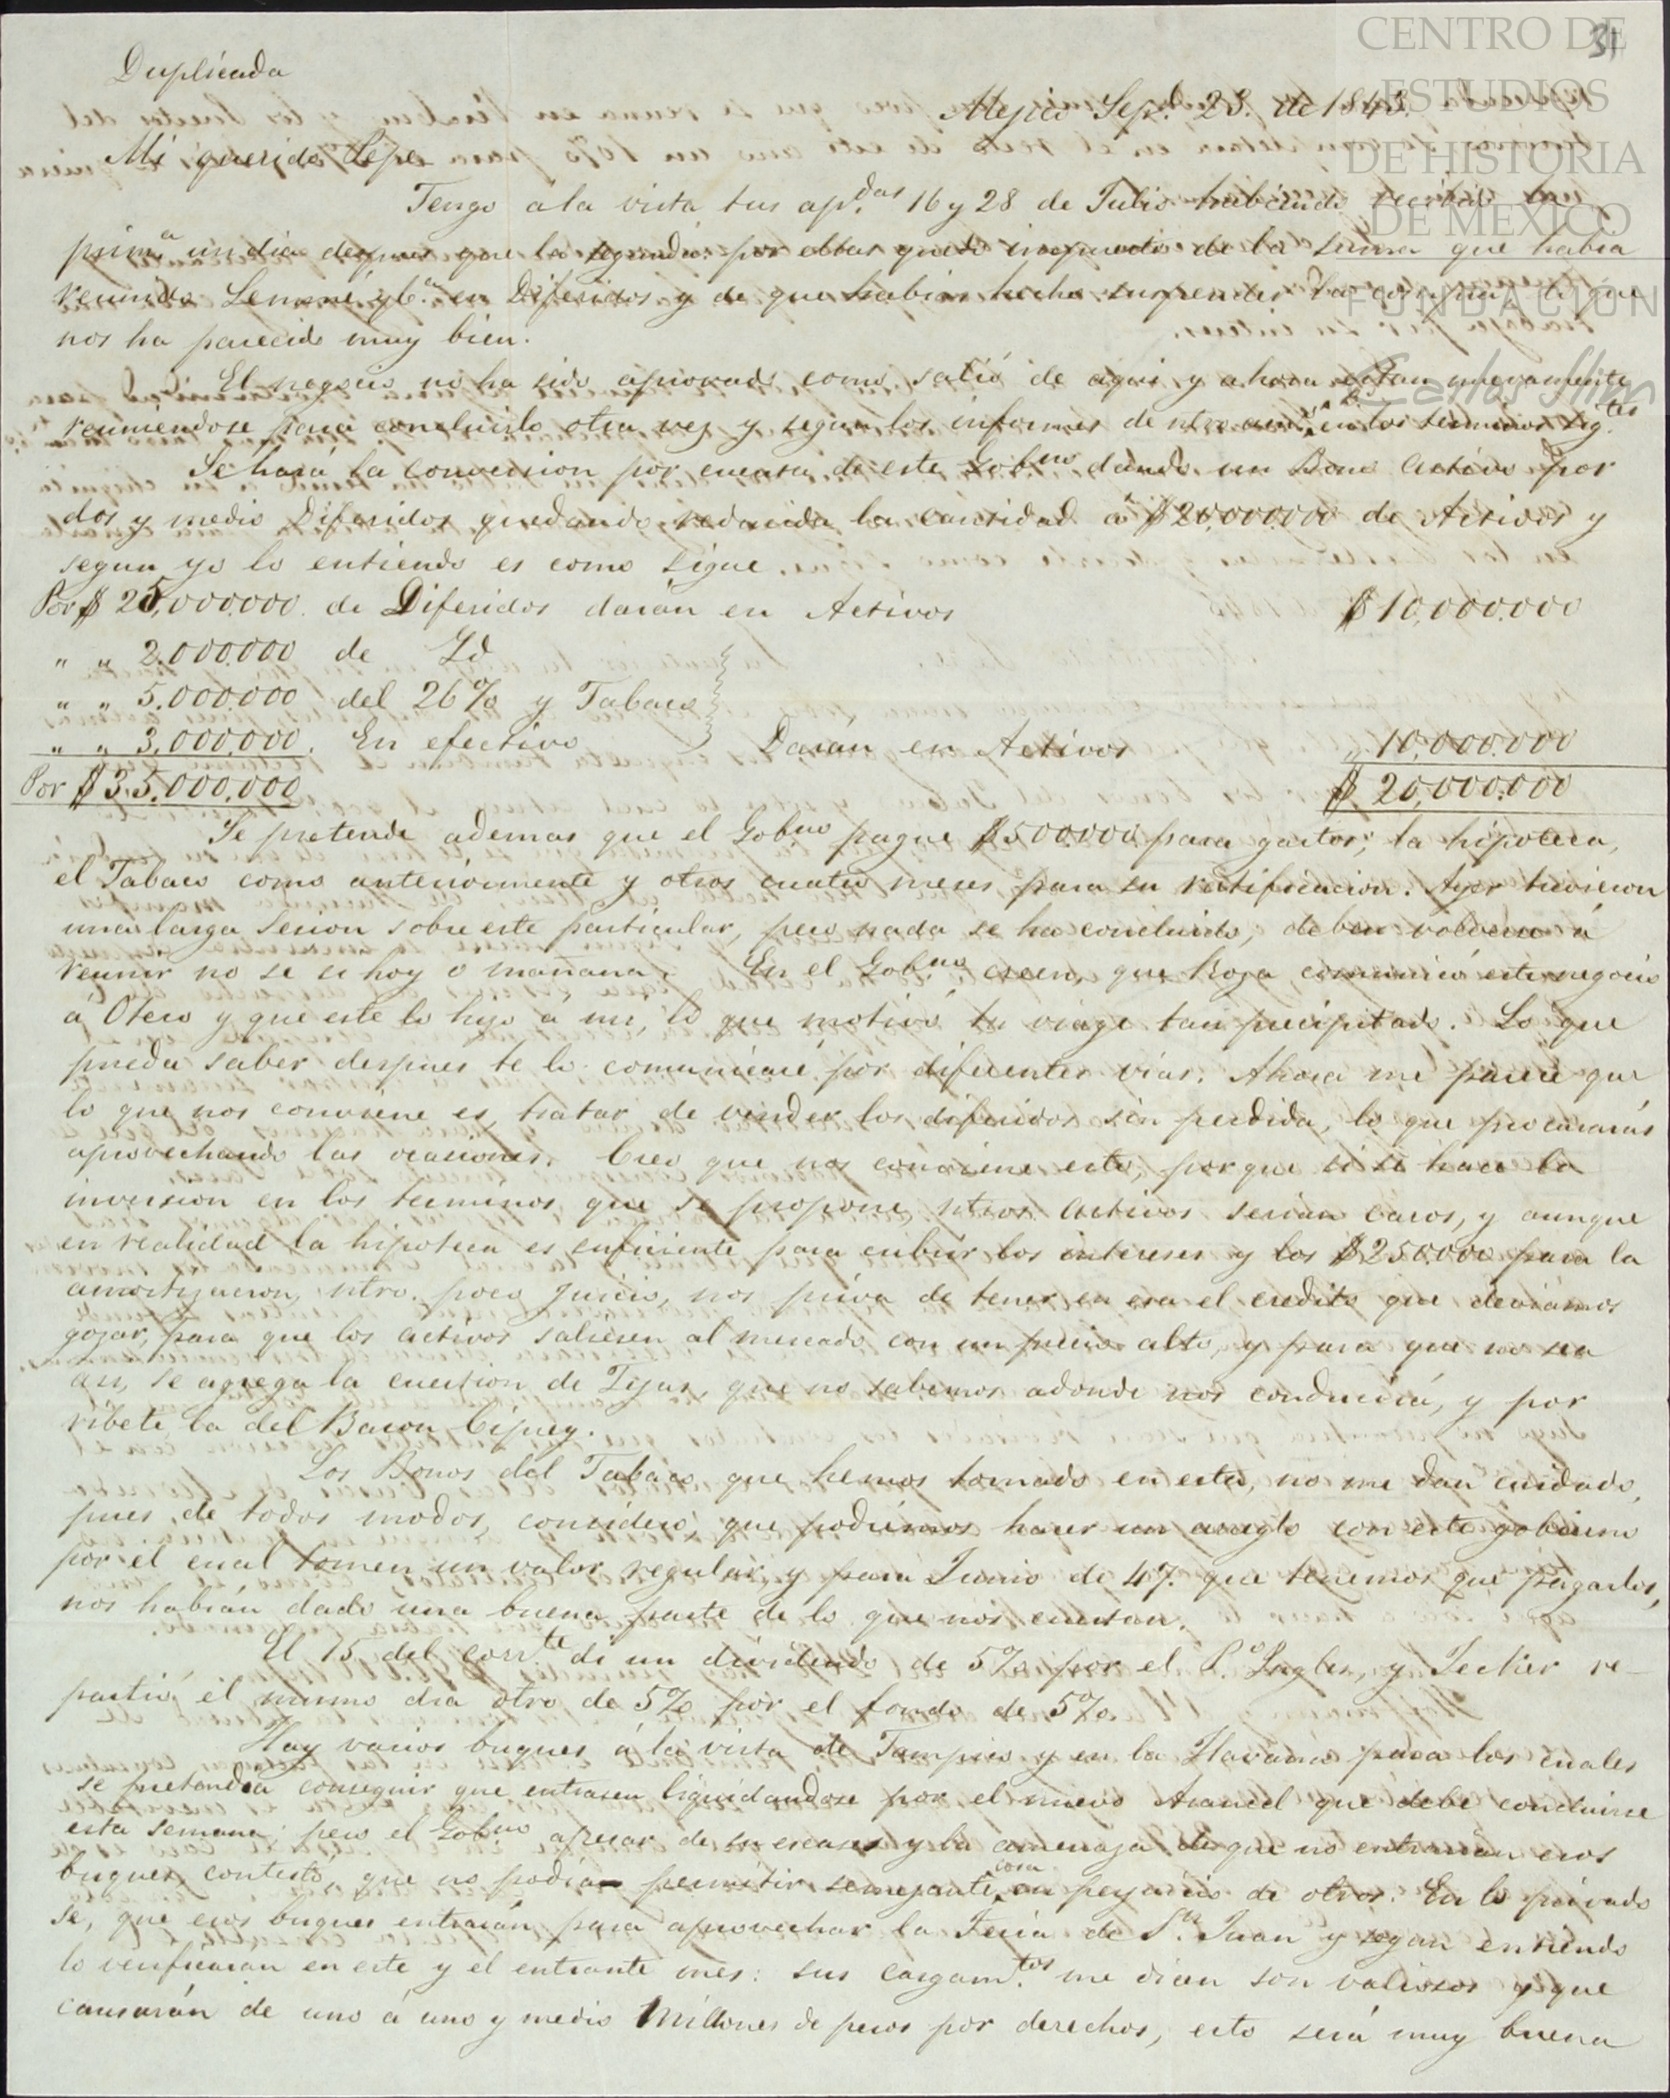 CENTRO DE
ESTUDIOS
DE HISTORIA
DE MEXICO
FUNDACIÓN
Carlos Slim
31
Duplicada
Mejico Sep. 23. de 1845.
Mi querido Pepe
Tengo á la vista tus ap.das 16 y 28 de Julio habiendo recibido la
prim.a un dia despues que la segunda: por ellas quedo impuesto de la suma que habia
reunido Lemané y C.a en Diferidos y de que habias hecho suspender las compras lo que
nos ha parecido muy bien.
El negocio no ha sido aprovado como salió de aqui y ahora estan nuevamente
reuniendose para concluirlo otra vez y segun los informes de ntro am.o en los terminos sig.tes
Se hará la conversion por cuenta de este Gob.no dando un Bono Activo por
dos y medio Diferidos quedando reducida la cantidad á $20,000.000 de Activos y
segun yo lo entiendo es como sigue.
Por $ 25,000.000. de Diferidos darán en Activos $10,000.000
" " 2.000.000 de Id
" " 5.000.000 del 26% y Tabaco
" " 3,000,000. En efectivo Darán en Activos " 10.000.000
Por $35.000,000 $ 20,000.000
Se pretende ademas que el Gob.no pague $500.000 para gastos; la hipoteca,
el Tabaco como anteriormente y otros cuatro meses para su ratificacion. Ayer tuvieron
una larga sesion sobre este particular, pero nada se ha concluido, deben volverse á
reunir no se si hoy o mañana. En el Gob.no creen, que Roja comunicó este negocio
á Otero y que este lo hizo á mi, lo que motivó tu viage tan precipitado. Lo que
pueda saber despues te lo comunicaré por diferentes vias. Ahora me parece que
lo que nos conviene es tratar de vender los diferidos sin perdida, lo que procurarás
aprovechando las ocasiones. Creo que nos conviene esto, porque si se hace la
inversion en los terminos que se propone, ntros activos serian caros, y aunque
en realidad la hipoteca es suficiente para cubrir los intereses y los $250.000 para la
amortizacion, ntro. poco juicio, nos priva de tener en esa el credito que deviamos
gozar, para que los activos saliesen al mercado con un precio alto, y para que no sea
asi, se agrega la cuestion de Tejas, que no sabemos adonde nos conducirá, y por
ribete la del Baron Ciprey.
Los Bonos del Tabaco que hemos tomado en esta, no me dan cuidado,
pues de todos modos, considero, que podriamos hacer un arreglo con este gobierno
por el cual tomen un valor regular, y para Junio de 47. que tenemos que pagarlos,
nos habrán dado una buena parte de lo que nos cuestan.
El 15 del corr.te di un dividendo de 5% por el P.o Ingles, y Jecker re-
partió el mismo dia otro de 5% por el fondo de 5%.
Hay varios buques á la vista de Tampico y en la Havana para los cuales
se pretendia conseguir que entrasen liquidandose por el nuevo Arancel que debe concluirse
esta semana; pero el Gob.no apesar de su escases y la amenaza de que no entrarian esos
buques, contestó, que no podia permitir semejante cosa en perjuicio de otros. En lo privado
sé, que esos buques entrarán para aprovechar la Feria de S.n Juan y segun entiendo
lo verificaran en este y el entrante mes: sus cargam.tos me dicen son valiosos y que
causarán de uno á uno y medio Millones de pesos por derechos, esto será muy buena